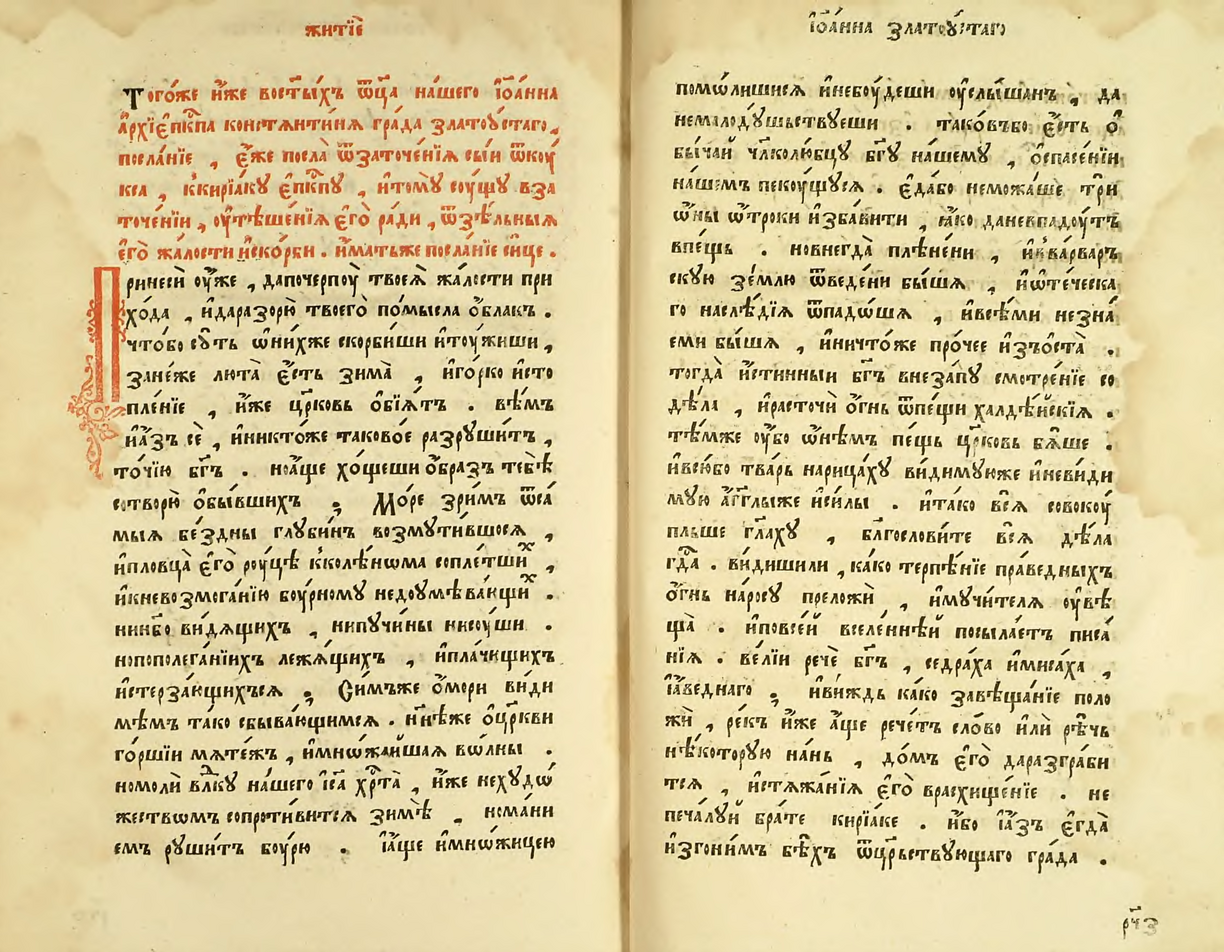 житїѐ
Тогоже и҆́же востⷭ҇ы́хъ ѿц҃а на́шего і҆ѡа́нна
а҆рхїе҆пкⷭ҇па констѧнтинѧ гра́да златоꙋстаго,
посла́нїе , є҆́же посла̀ ѿзаточе́нїѧ сы́и ѿкоу́
кса , ккирїа́кꙋ є҆пкⷭ҇пꙋ , и҆томꙋ̀ соу́щꙋ вза
точе́нїи , оу҆тѣше́нїѧ є҆гѡ̀ ра́ди , ѿзѣ́льныѧ
є҆го̀ жа́лости и҆ско́рби . и҆́мать же посла́нїе си́це .
Принесѝ оу҆́же , дапочерпоу̀ твоеѧ̀ жа́лости при
хо́да , и҆даразорю̀ твоего̀ по́мысла о҆́блакъ .
что́бо сꙋ́ть ѡ҆ни́хже скорби́ши и҆тоу́жиши ,
зане́же люта̀ є҆́сть зима̀ , и҆го́рко и҆сто
пле́нїе , и҆́же цр҃ковь ѻ҆бїѧ́тъ . вѣ́мъ
и҆а҆́зъ сѐ , и҆никто́же таково́е разрꙋши́тъ ,
то́чїю бг҃ъ . ноа҆́ще хо́щеши о҆́бразъ тебѣ̀
сотворю̀ ѻ҆бы́вшихъ ; Мо́ре зри́мъ ѿса
мыѧ̀ бе́здны глꙋби́нъ возмꙋти́вшоесѧ ,
и҆пловца̀ є҆го̀ роу́цѣ кколѣ́нѡма сопле́тшиⷯ ,
и҆кневозмога́нїю боу́рномꙋ недоꙋмѣва́ющиⷯ .
нинб҃о ви́дѧщихъ , нипꙋчи́ны нисоу́ши .
нопополега́нїихъ лежа́щихъ , и҆пла́чющихъ
и҆стерза́ющихъсѧ ; Си́мъже ѻ҆мо́ри ви́ди
мѣмъ та́ко сбыва́ющимсѧ . нн҃ѣже ѻ҆цр҃кви
го́ршїи мѧте́жъ , и҆мнѡ́жаишаѧ вѡ́лны .
номолѝ влⷣкꙋ на́шего і҆с҃а хрⷭ҇та̀ , и҆́же нехꙋдѡ́
жествѡмъ сопроти́витсѧ зимѣ̀ , нома́ни
емъ рꙋши́тъ боу́рю . і҆а҆́ще и҆мнѡ́жицею
і҆ѡа́нна златоꙋстаго
помѡли́шисѧ и҆небоу́деши оу҆слы́шанъ , да
немалодꙋ́шьствꙋеши . тако́въбо є҆́сть ѻ҆
бы́чаи чл҃колю́бцꙋ бг҃ꙋ на́шемꙋ , ѻ҆спасе́нїи
на́шемъ пекоу́щꙋсѧ . є҆да́бо неможа́ше трѝ
ѡ҆́ны ѡ҆́троки и҆зба́вити , ꙗ҆́ко даневпадоу́тъ
впе́щь . новнегда̀ плѣ́нени , и҆вва́рваръ
скꙋю зе́млю ѿведе́ни бы́шѧ , и҆ѡ҆те́ческа
го наслѣ́дїѧ ѿпадѡ́шѧ , и҆все́ми незна́
еми бы́шѧ , и҆ничто́же про́чее и҆зъѡста̀ .
тогда̀ и҆́стинныи бг҃ъ внеза́пꙋ смотре́нїе со
дѣ́ла , и҆расточѝ о҆́гнь ѿпе́щи халдѣ́искїѧ .
тѣ́мже оу҆́бо ѡ҆нѣ́мъ пе́щь цр҃ковь бѧ́ше .
и҆всю́бо тва́рь нарица́хꙋ ви́димꙋюже и҆неви́ди
мꙋю а҆́гг҃лыже и҆си́лы . и҆та́ко всѧ̀ совокоу́
пльше гл҃ахꙋ , бл҃гослови́те всѧ̀ дѣ́ла
гдⷭ҇а . ви́дишили , ка́ко терпѣ́нїе пра́ведныхъ
о҆́гнь на́росꙋ преложѝ , и҆мꙋчи́телѧ оу҆вѣ
ща̀ . и҆повсе́и вселе́ннѣи посыла́етъ писа́
нїѧ . ве́лїи речѐ бг҃ъ , седра́ха и҆миса́ха ,
і҆а҆вединаго ; и҆ви́ждь ка́ко завѣща́нїе поло
жѝ , ре́къ и҆́же а҆́ще рече́тъ сло́во и҆лѝ рѣ́чь
нѣ́которꙋю на́нь , до́мъ є҆го̀ даразгра́би
тсѧ , и҆стѧжа́нїѧ є҆го̀ врасхище́нїе . не
печа́лꙋи бра́те кирїа́ке . и҆́бо і҆а҆́зъ є҆гда̀
и҆згони́мъ бѣ́хъ ѿцр҃ьствꙋющаго гра́да .
рч҃з